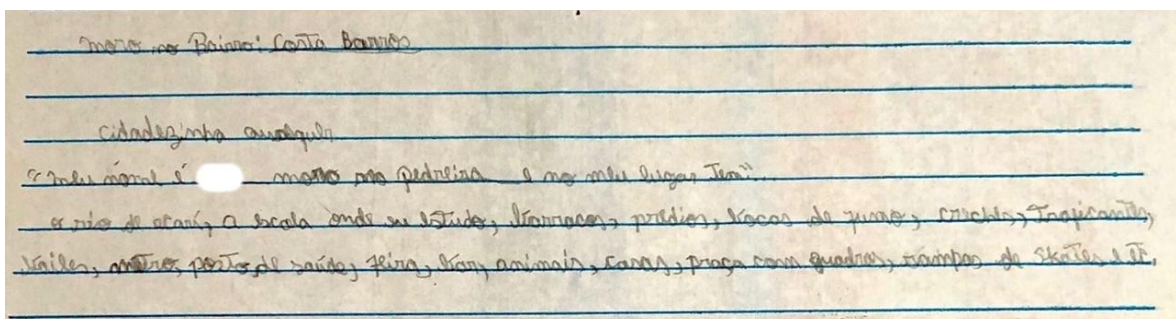 moro no Bairro: Costa Barros
cidadezinha qualquer
"meu nome é moro na pedreira e no meu lugar Tem"...
o rio de acari, a escola onde eu estudo, barracos, prédios, bocas de fumo, creches, Traficantes,
bailes, metro, posto de saúde, feira, bar, animais, casas, praça com quadras, rampas de skates e